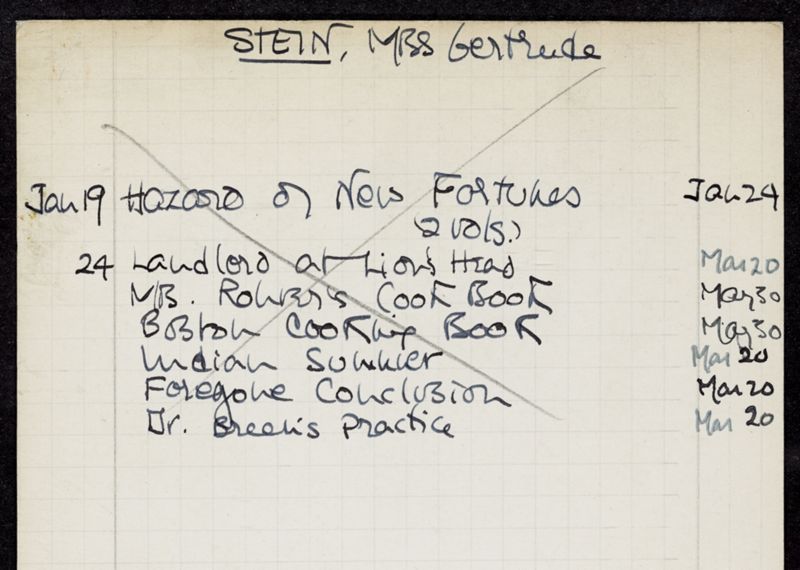 STEIN, Miss Gertrude
Jan 19 Hazard of New Fortunes Jan 24
(2 vols.)
24 Landlord at Lion's Head Mar 20
Mrs. Rorer's Cook Book May 30
Boston Cooking Book May 30
Indian Summer Mar 20
Foregone Conclusion Mar 20
Dr. Breen's Practice Mar 20